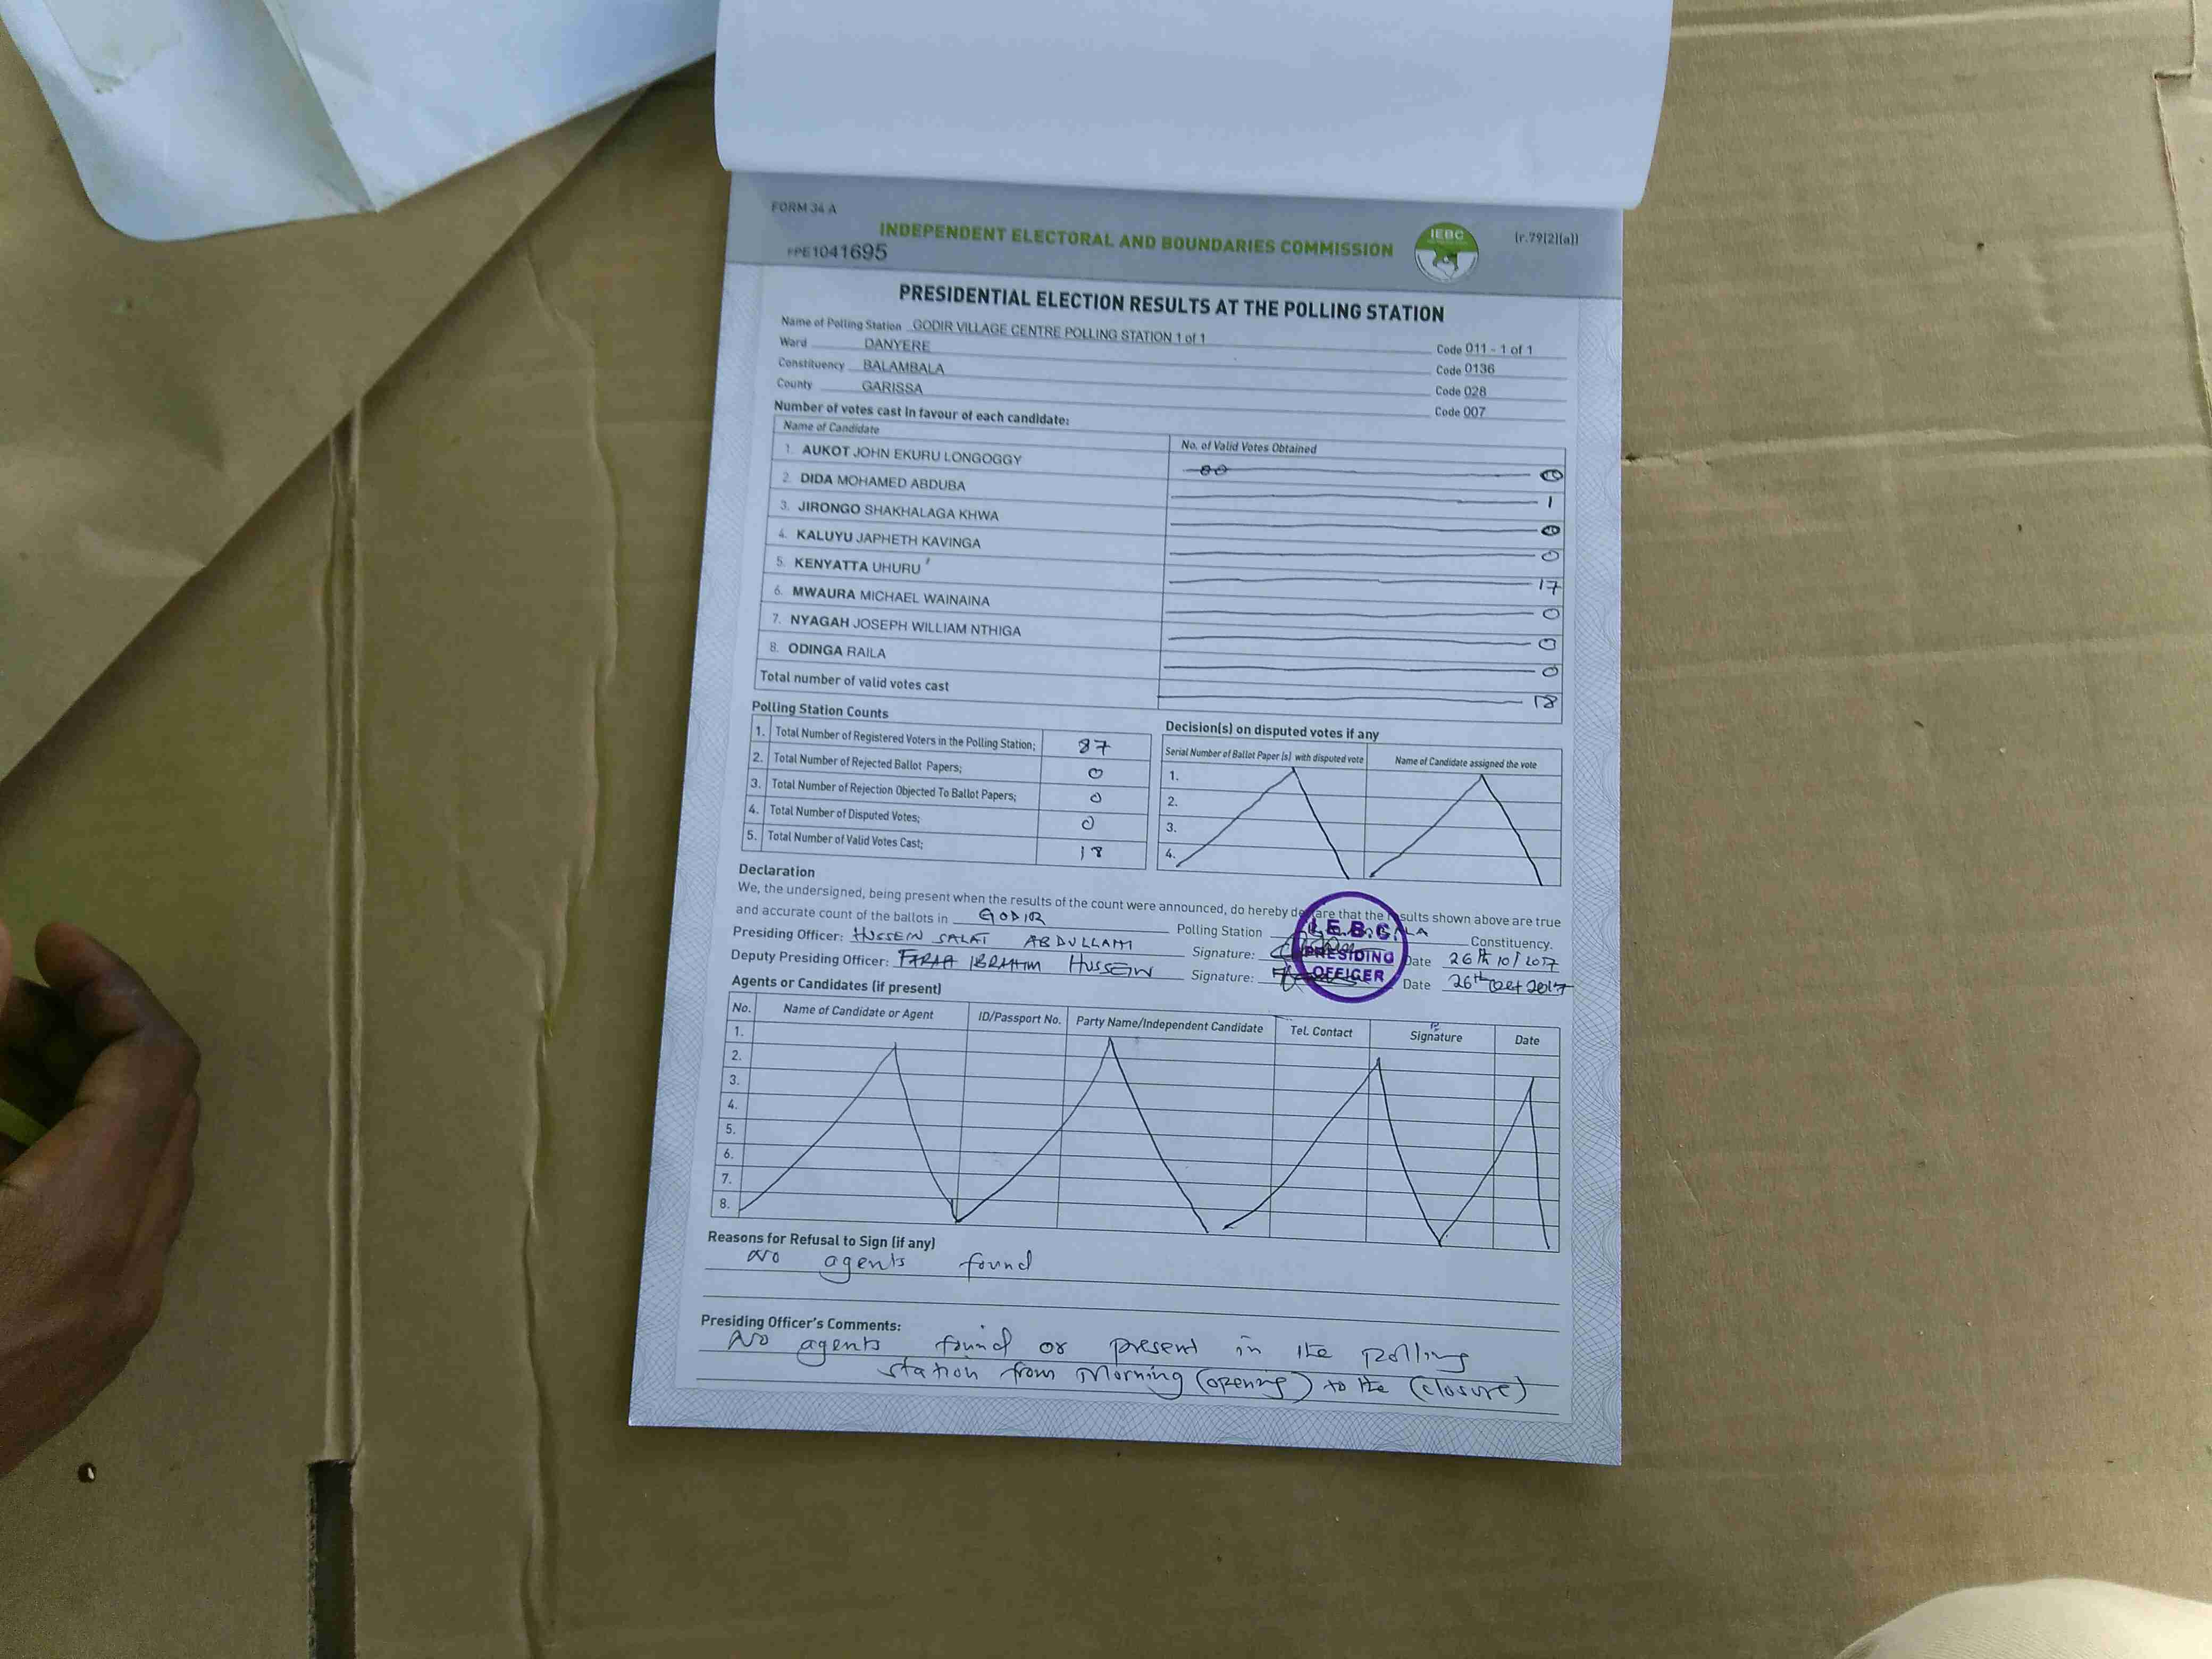 FORM 34 A
INDEPENDENT ELECTORAL AND BOUNDARIES COMMISSION
IEBC
(r.79(2)(a))
PPE1041695
PRESIDENTIAL ELECTION RESULTS AT THE POLLING STATION
Name of Polling Station GODIR VILLAGE CENTRE POLLING STATION 1 of 1 Code 011 - 1 of 1
Ward DANYERE Code 0136
Constituency BALAMBALA Code 028
County GARISSA Code 007
Number of votes cast in favour of each candidate:
Name of Candidate No. of Valid Votes Obtained
1. AUKOT JOHN EKURU LONGOGGY
2. DIDA MOHAMED ABDUBA 1
3. JIRONGO SHAKHALAGA KHWA
4. KALUYU JAPHETH KAVINGA 0
5. KENYATTA UHURU 17
6. MWAURA MICHAEL WAINAINA 0
7. NYAGAH JOSEPH WILLIAM NTHIGA 0
8. ODINGA RAILA 0
Total number of valid votes cast 18
Polling Station Counts
1. Total Number of Registered Voters in the Polling Station; 87
2. Total Number of Rejected Ballot Papers; 0
3. Total Number of Rejection Objected To Ballot Papers; 0
4. Total Number of Disputed Votes; 0
5. Total Number of Valid Votes Cast; 18
Decision(s) on disputed votes if any
Serial Number of Ballot Paper (s) with disputed vote Name of Candidate assigned the vote
1.
2.
3.
4.
Declaration
We, the undersigned, being present when the results of the count were announced, do hereby declare that the results shown above are true
and accurate count of the ballots in GODIR Polling Station Constituency.
Presiding Officer: HUSSEIN SALAT ABDULLAHI Signature: Date 26th 10/2017
Deputy Presiding Officer: FARAH IBRAHIM HUSSEIN Signature: Date 26th Oct 2017
I.E.B.C.
PRESIDING
OFFICER
Agents or Candidates (if present)
No. Name of Candidate or Agent ID/Passport No. Party Name/Independent Candidate Tel. Contact Signature Date
1.
2.
3.
4.
5.
6.
7.
8.
Reasons for Refusal to Sign (if any)
No agents found
Presiding Officer's Comments:
No agents found or present in the polling
station from Morning (opening) to the (closure)